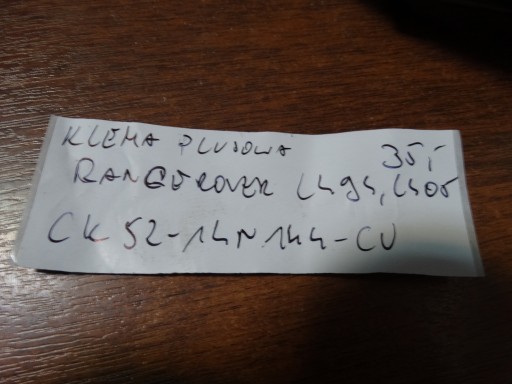 KLEMA PLUSOWA 35,-
RANGEROVER L494, L405
CK52-14N144-CU